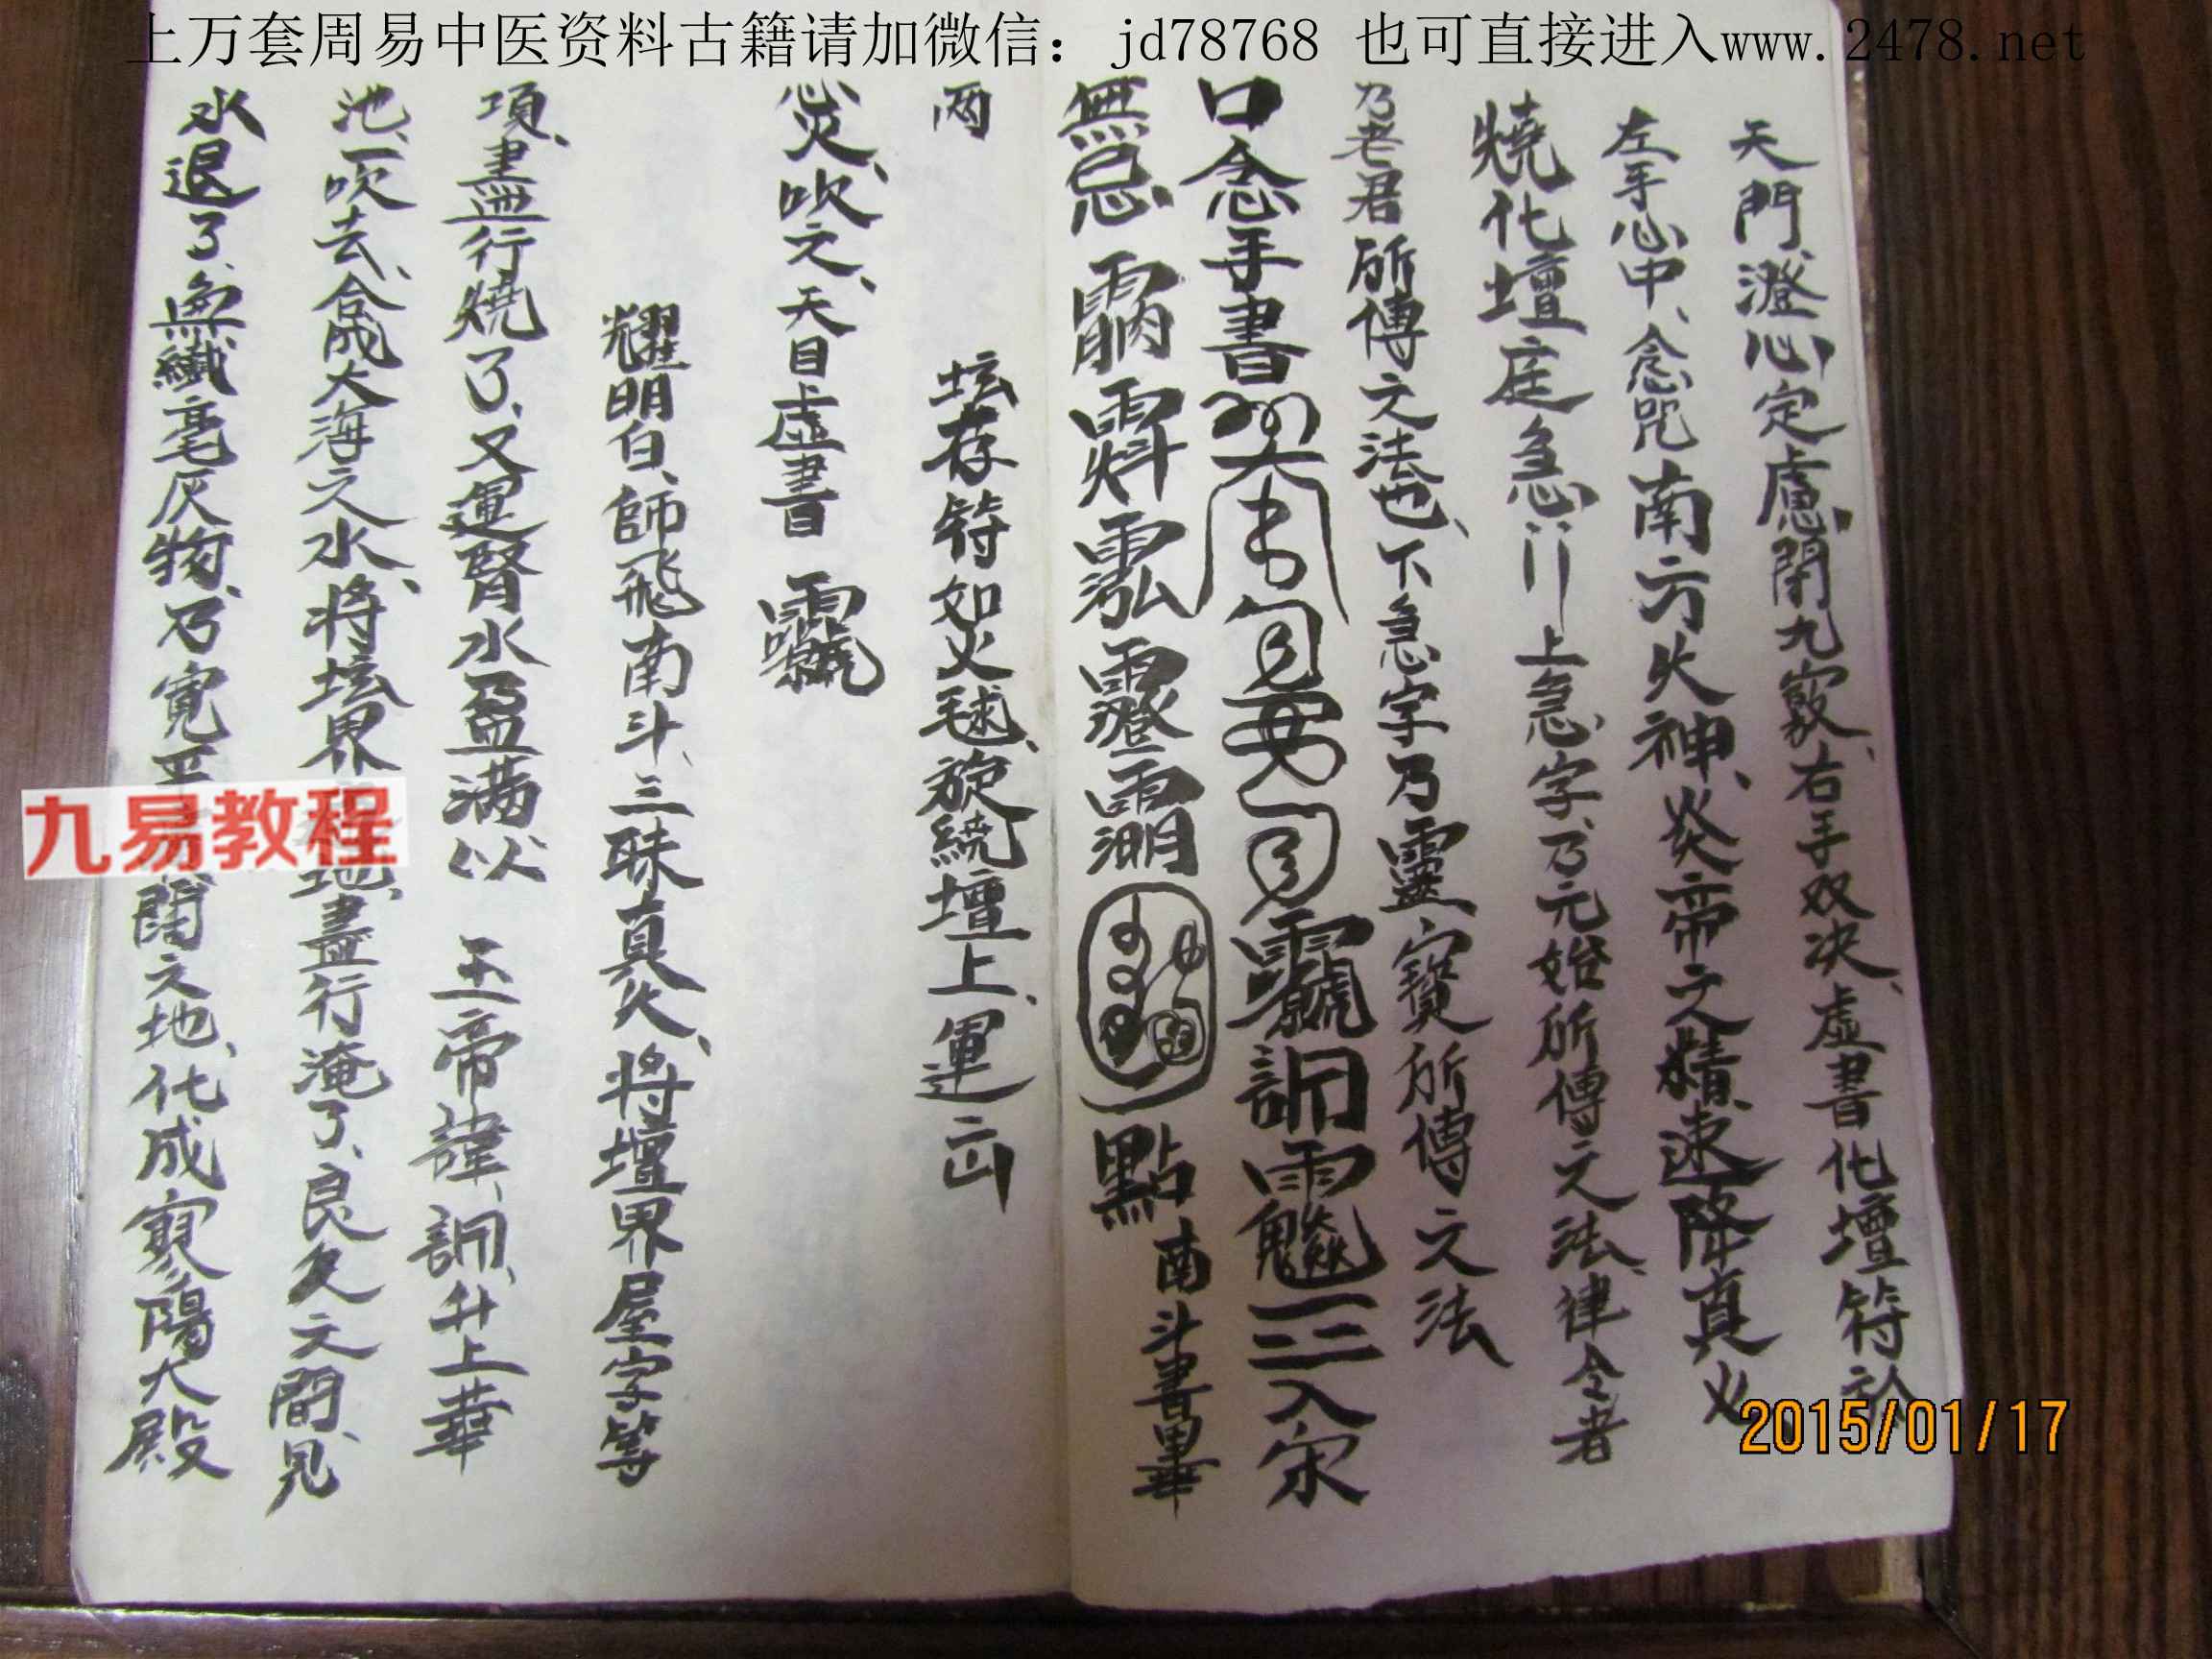 上万套周易中医资料古籍请加微信： jd78768 也可直接进入www.2478.net
天門、澄心定慮、閉九竅、右手双决、虛書化壇符於
左手心中、念咒南方火神、炎帝之精、速降真火
燒化壇庭急急 上急字、乃元始所傳之法、律令者
乃老君所傳之法也、下急字乃靈寶所傳之法
口念手書 入宋
無忌 點南斗書畢
两 坛存符如火毬、旋繞壇上、運
吹之、天目虛書
耀明白、師飛南斗、三昧真火、将壇界屋字等
項、盡行燒了、又運腎水盈满以 玉帝諱、訶、升上華
池、一吹去、 成大海之水、将坛界 地、盡行淹了、良久之間、見
水退了、無纖毫灰物、乃寬平 闊之地、化成寥陽大殿
九易教程
2015/01/17